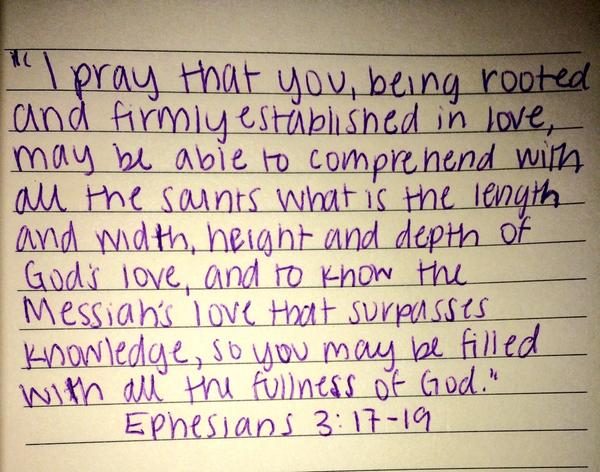 "I pray that you, being rooted
and firmly established in love,
may be able to comprehend with
all the saints what is the length
and width, height and depth of
God's love, and to know the
Messiah's love that surpasses
knowledge, so you may be filled
with all the fullness of God."
Ephesians 3:17-19